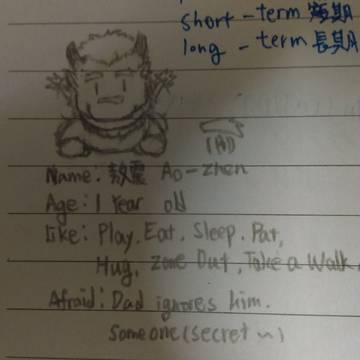 short-term 短期
long-term 長期
Name: 敖震 Ao-zhen
Age: 1 Year old
Like: Play, Eat, Sleep, Pat,
Hug, Zone Out, Take a Walk
Afraid: Dad ignores him.
Someone (secret ~)